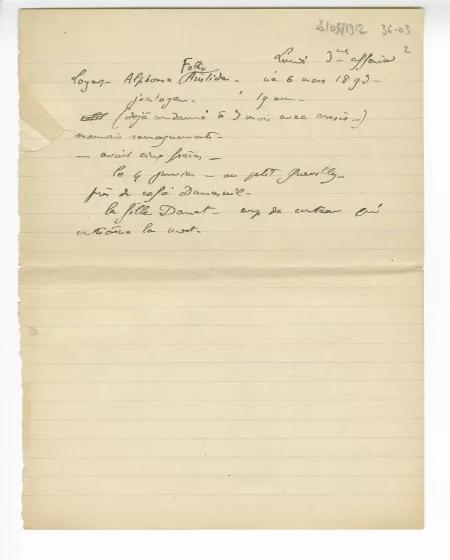 36-03
2
Lundi 3me affaire
Félix
Loyer - Alphonse Aristide - né 6 mars 1893 -
journalier - 19 ans -
(déjà condamné à 3 mois avec sursis -)
mauvais renseignements -
- avait cinq frères -
le 4 janvier - au petit Quevilly -
près du café
la fille - coup de couteau qui
entraîna la mort -